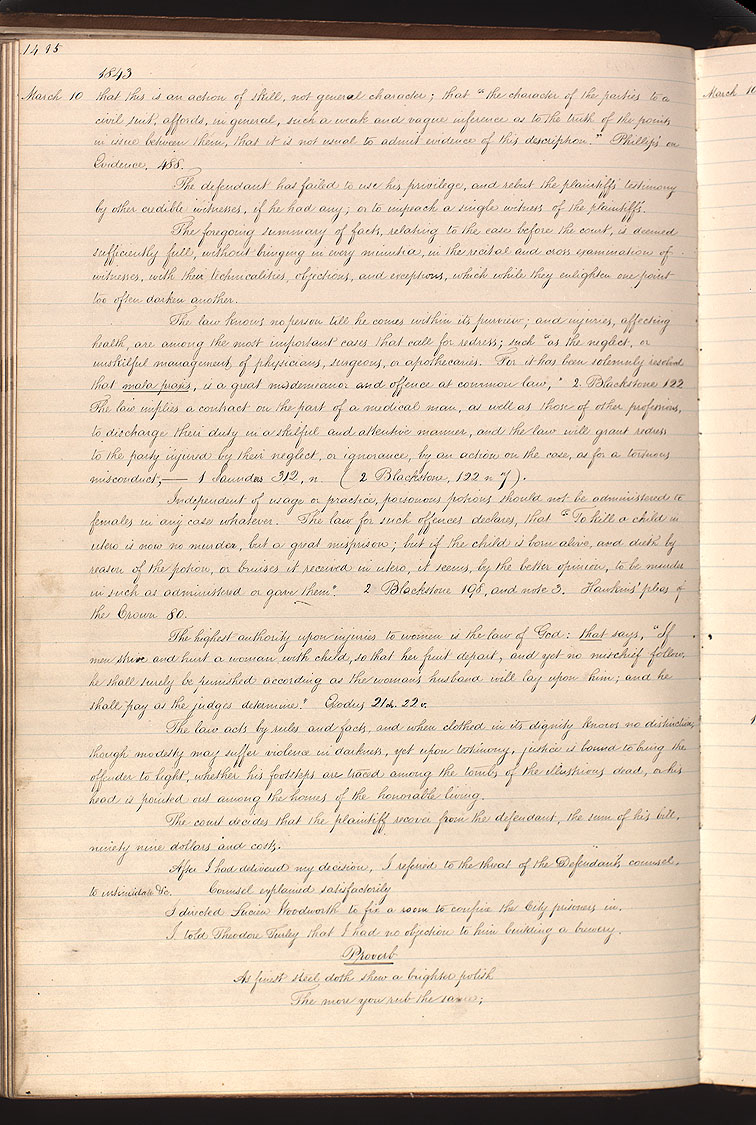 1495
1843
March 10 that this is an action of skill, not general character; that "the character of the parties to a
civil suit, affords, in general, such a weak and vague inference as to the truth of the points
in issue between them, that it is not usual to admit evidence of this description." Phillips on
Evidence, 488.
The defendant has failed to use his privilege, and rebut the plaintiff's testimony
by other credible witnesses, if he had any; or to impeach a single witness of the plaintiff's.
The foregoing summary of facts, relating to the case before the court, is deemed
sufficiently full, without bringing in every minutia, in the recital and cross examination of
witnesses, with their technicalities, objections, and exceptions, which while they enlighten one point
too often darken another.
The law knows no person till he comes within its purview; and injuries, affecting
health, are among the most important cases that call for redress; such "as the neglect, or
unskilful management, of physicians, surgeons, or apothecaries. For it has been solemnly resolved
that mala praxis, is a great misdemeanor and offence at common law," 2 Blackstones 122
The law implies a contract on the part of a medical man, as well as those of other professions,
to discharge their duty in a skilful and attentive manner, and the law will grant redress
to the party injured by their neglect, or ignorance, by an action on the case, as for a tortuous
misconduct,— 1 Saunders 312, n. (2 Blackstone, 122 n 7).
Independent of usage or practice, poisonous potions should not be administered to
females in any case whatever. The law for such offences declares, that "To kill a child in
utero is now no murder, but a great misprision; but if the child is born alive, and dieth by
reason of the potion, or bruises it received in utero, it seems, by the better opinion, to be murder
in such as administered or gave them". 2 Blackstone 198, and note 3. Hawkins' pleas of
the Crown 80.
The highest authority upon injuries to women is the law of God: that says, "If
men strive and hurt a woman with child, so that her fruit depart, and yet no mischief follow.
he shall surely be punished according as the woman's husband will lay upon him; and he
shall pay as the judges determine". Exodus 21 ch. 22 v.
The law acts by rules and facts, and when clothed in its dignity knows no distinction;
though modesty may suffer violence in darkness, yet upon testimony, justice is bound to bring the
offender to light, whether his footsteps are traced among the tombs of the illustrious dead, or his
head is pointed out among the homes of the honorable living.
The court decides that the plaintiff recover from the defendant, the sum of his bill,
ninety nine dollars and costs.
After I had delivered my decision, I referred to the threat of the Defendant's counsel,
to intimidate &c. Counsel explained satisfactorily
I directed Lucien Woodworth to fix a room to confine the City prisoners in.
I told Theodore Turley that I had no objection to him building a brewery.
Proverb
As finest steel doth shew a brighter polish
The more you rub the same;
March 10